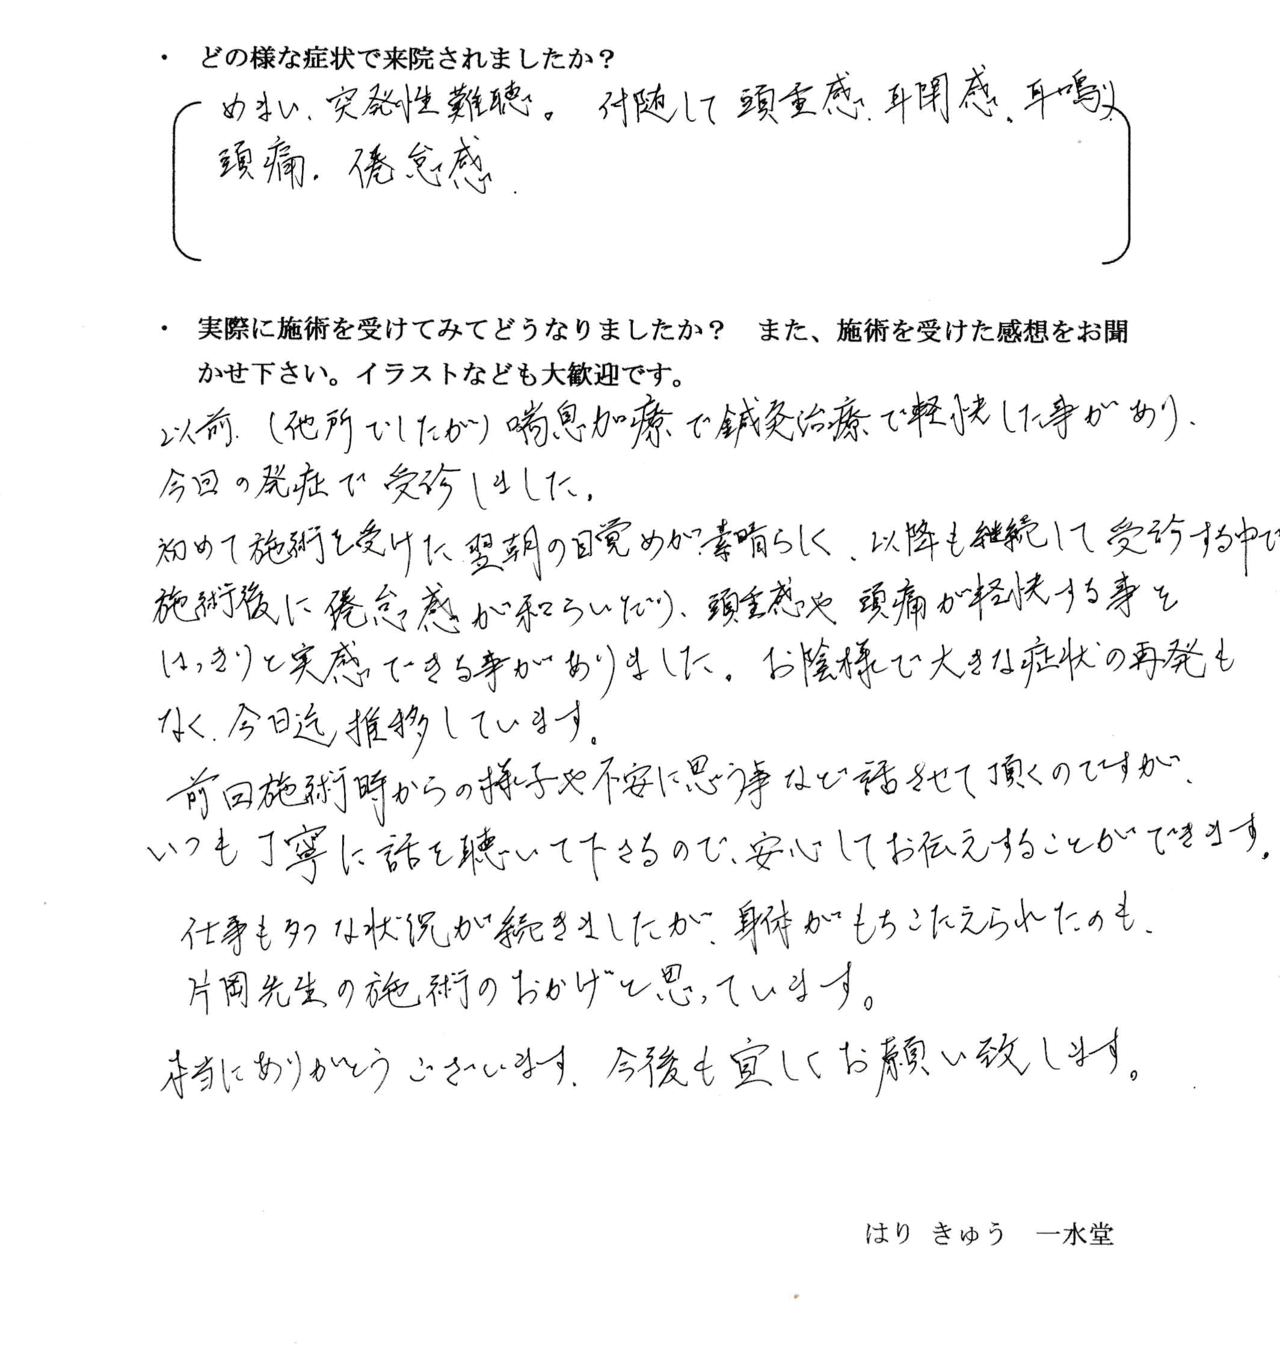 ・ どの様な症状で来院されましたか？
めまい、突発性難聴。 付随して 頭重感、耳閉感、耳鳴り
頭痛、倦怠感
・ 実際に施術を受けてみてどうなりましたか？ また、施術を受けた感想をお聞
かせ下さい。イラストなども大歓迎です。
以前、(他所でしたが) 喘息加療で鍼灸治療で軽快した事があり、
今回の発症で受診しました。
初めて施術を受けた翌朝の目覚めが素晴らしく、以降も継続して受診する中で
施術後に倦怠感が和らいだり、頭重感や頭痛が軽快する事を
はっきりと実感できる事がありました。お陰様で大きな症状の再発も
なく、今日迄推移しています。
前回施術時からの様子や不安に思う事など話させて頂くのですが、
いつも丁寧に話を聴いて下さるので、安心してお伝えすることができます。
仕事も多忙な状況が続きましたが、身体がもちこたえられたのも、
片岡先生の施術のおかげと思っています。
本当にありがとうございます。今後も宜しくお願い致します。
はり きゅう 一水堂